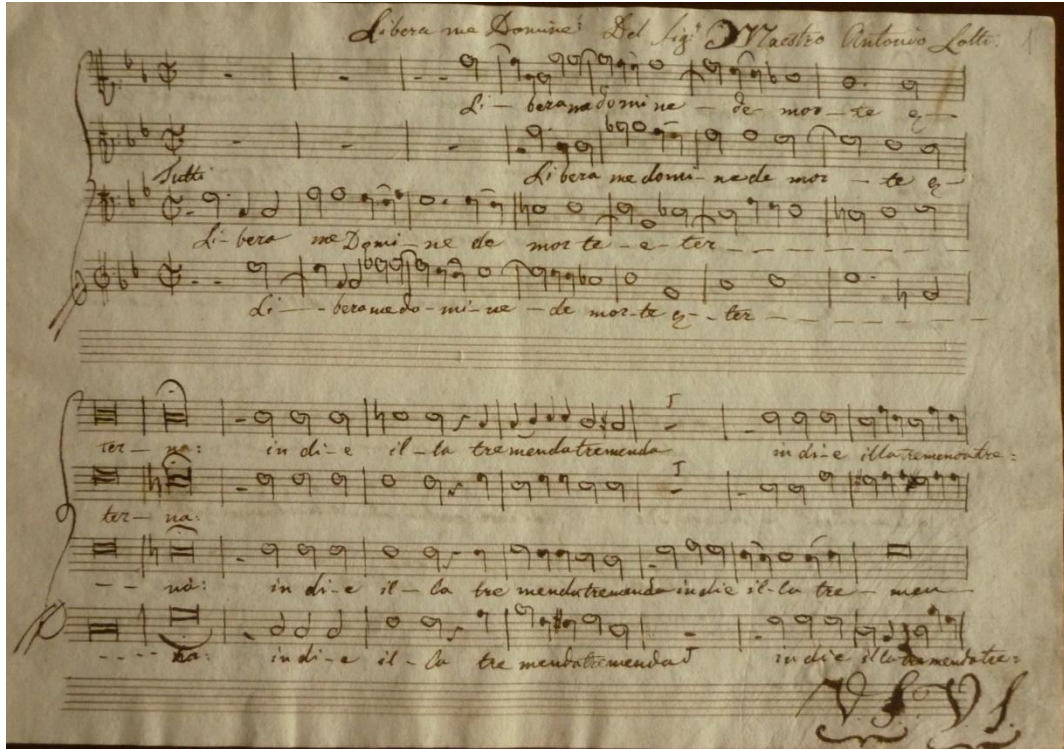 Libera me Domine: Del Sigr Maestro Antonio Lotti. 1
Li - bera me domi ne - de mor - te e -
Li bera me domi - ne de mor - te e -
Tutti
Li - bera me Domi - ne de mor te - e - ter
Li - - bera me do - mi - ne - de mor - te e - ter
ter - na: in di - e il - la tremenda tremenda in di - e illa tremenda tre =
ter - na:
- - na: in di - e il - la tre menda tremenda in die il - la tre - men
- - - - na: in di - e il - la tre menda tremenda in di e illa tremenda tre =
V. S. V. S.